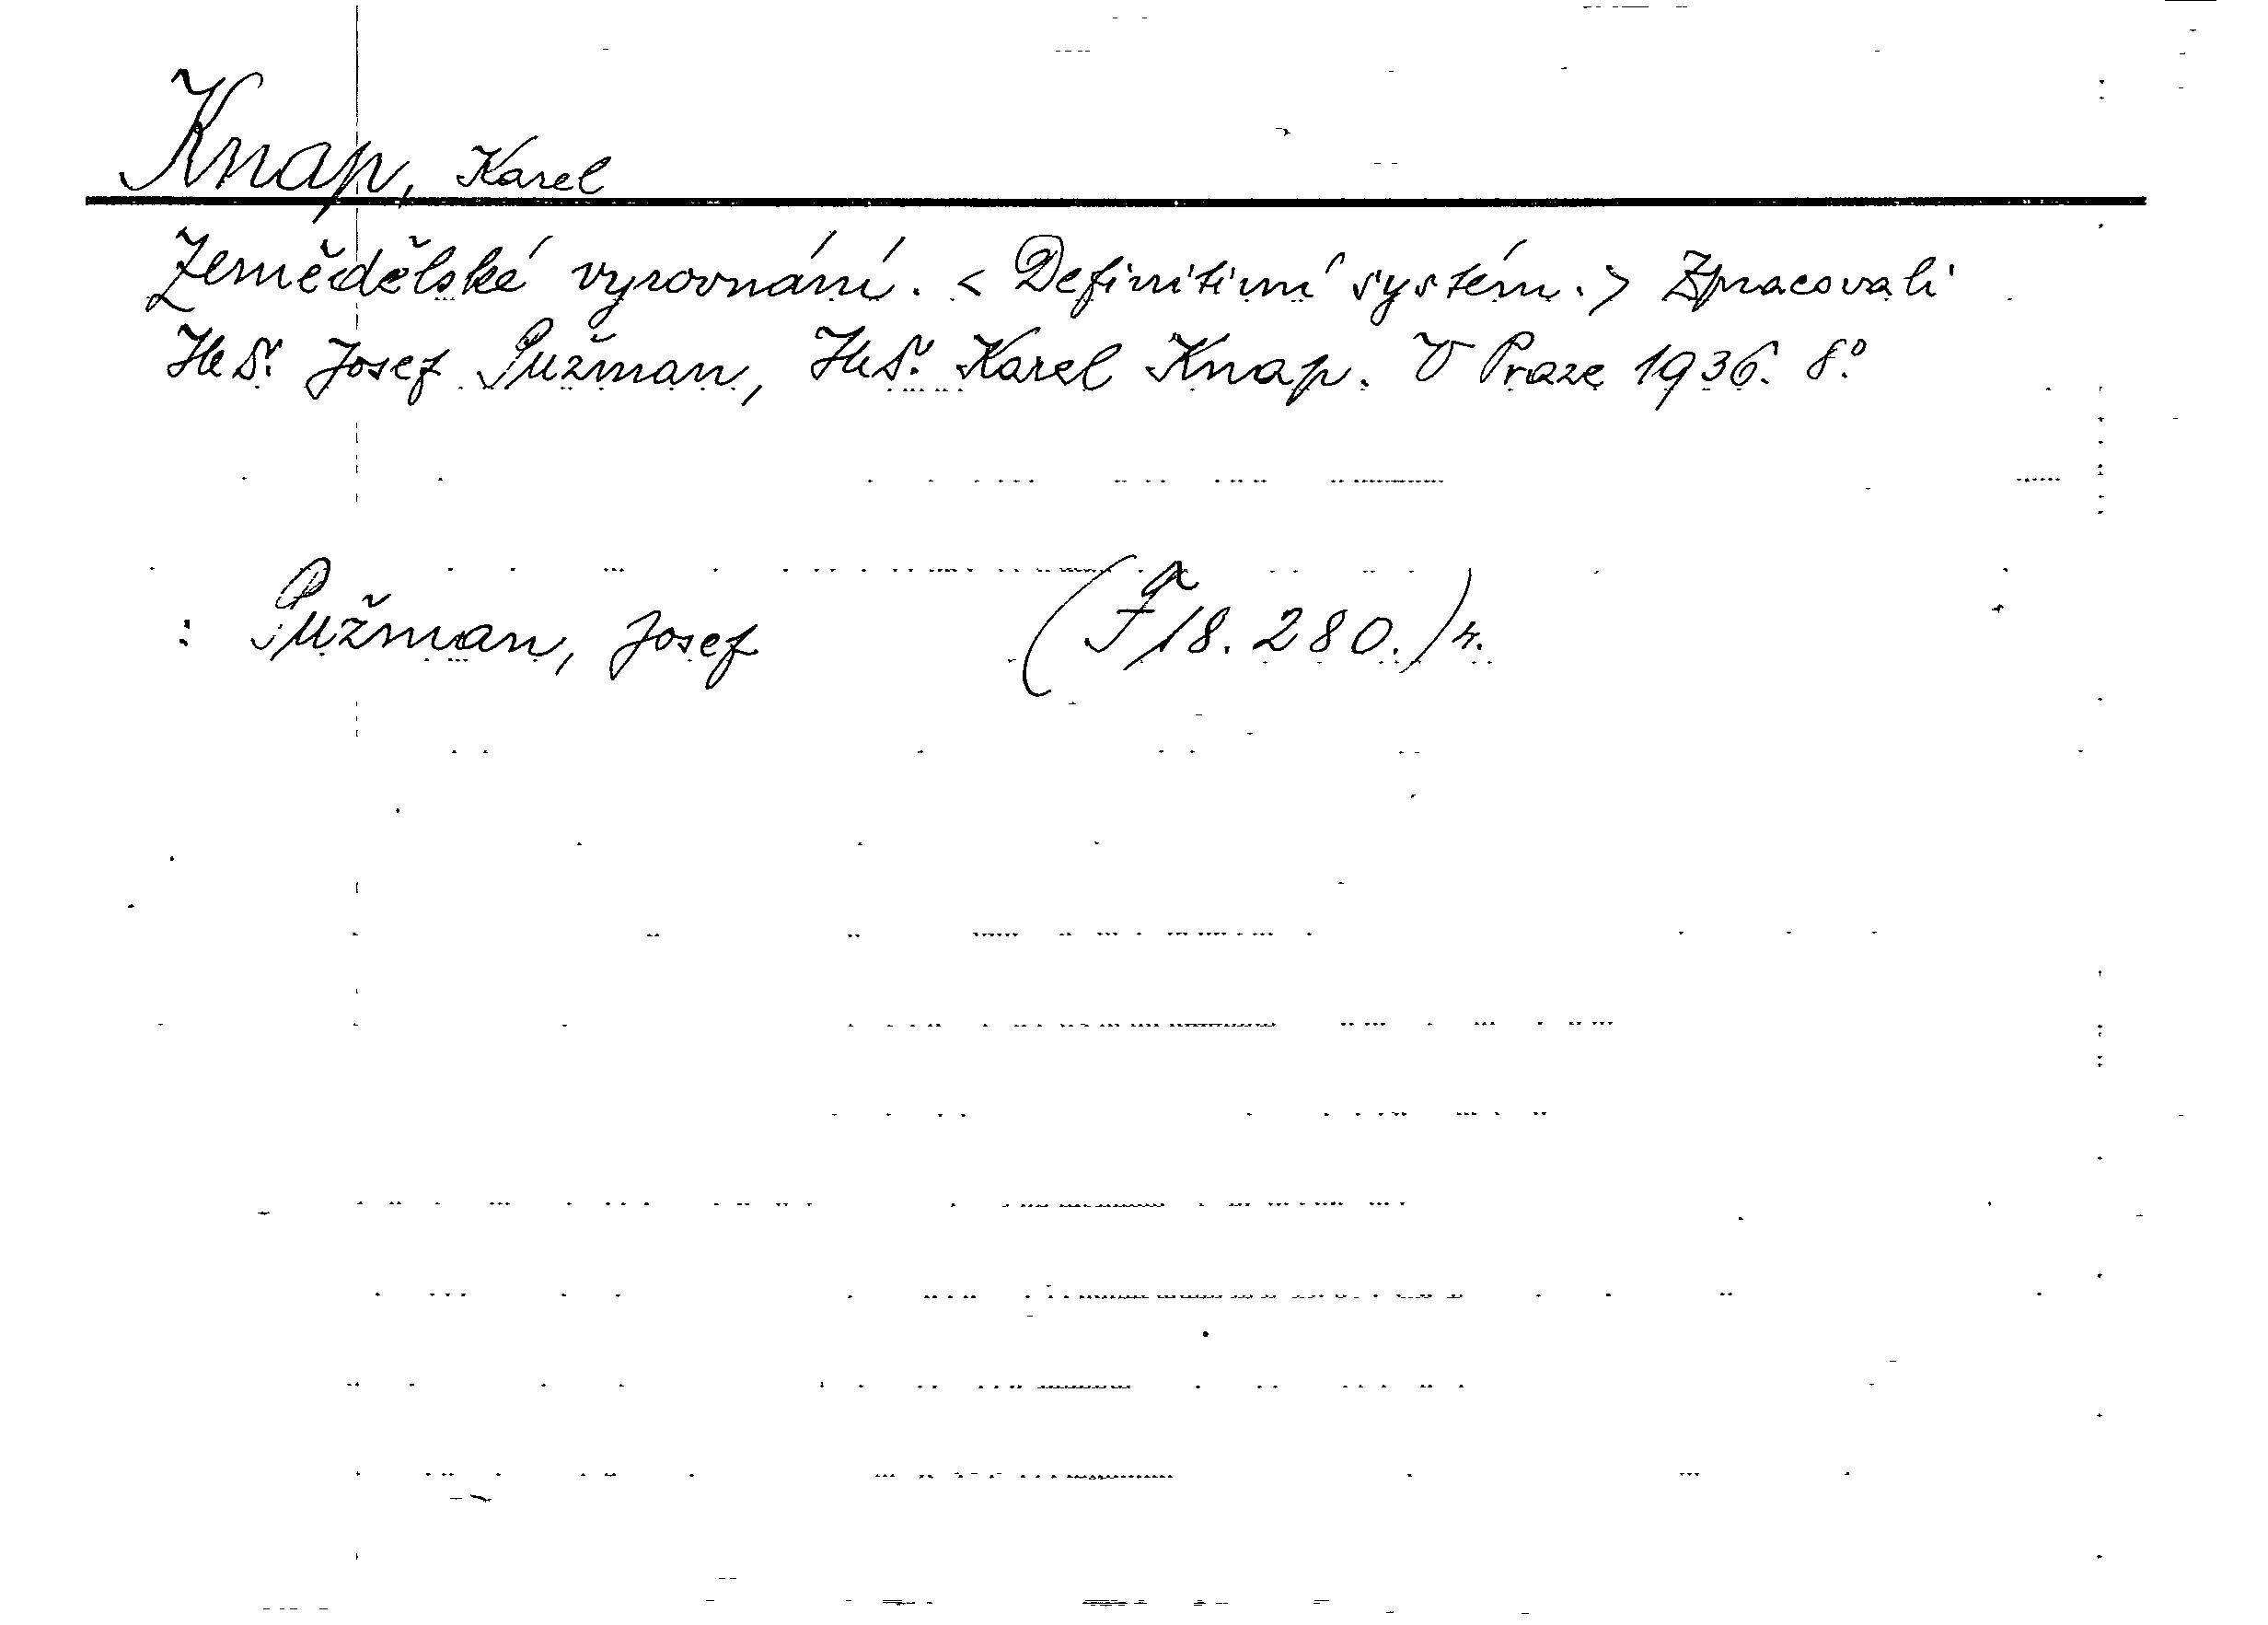 Knap, Karel
Zemědělské vyrovnání. < Definitivní systém. > Zpracovali
JUDr. Josef Pužman, JUDr. Karel Knap. V Praze 1936. 8°.
: Pužman, Josef (F 18.280.)